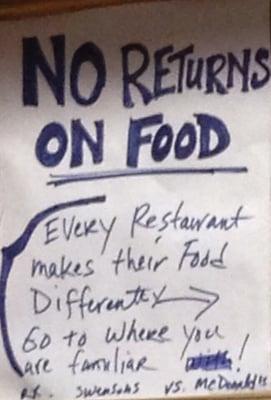 NO RETURNS
ON FOOD
EVERY Restaurant
makes their Food
Differently
Go to where you
are familiar !
Swensons vs. McDonald's